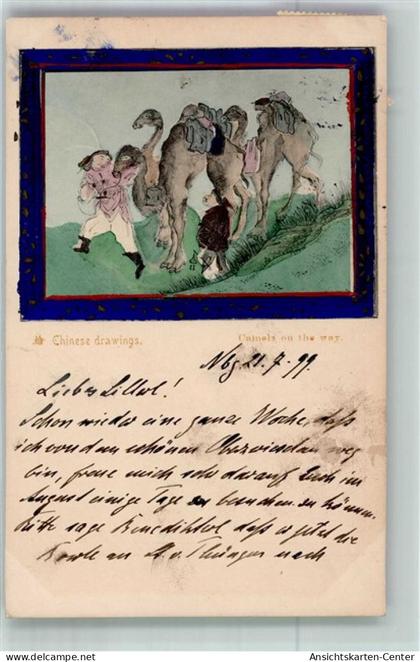 Chinese drawings.
Camels on the way.
Nbg. 21. 7. 99.
Liebes Lillerl!
Schon wieder eine ganze Woche, daß
ich von dem schönen Oberwiesdau weg
bin, freue mich sehr darauf Euch im
August einige Tage zu besuchen zu können.
Bitte sage daß er jetzt die
Karte an nach
www.ansichtskarten-center.de
Ansichtskarten-Center